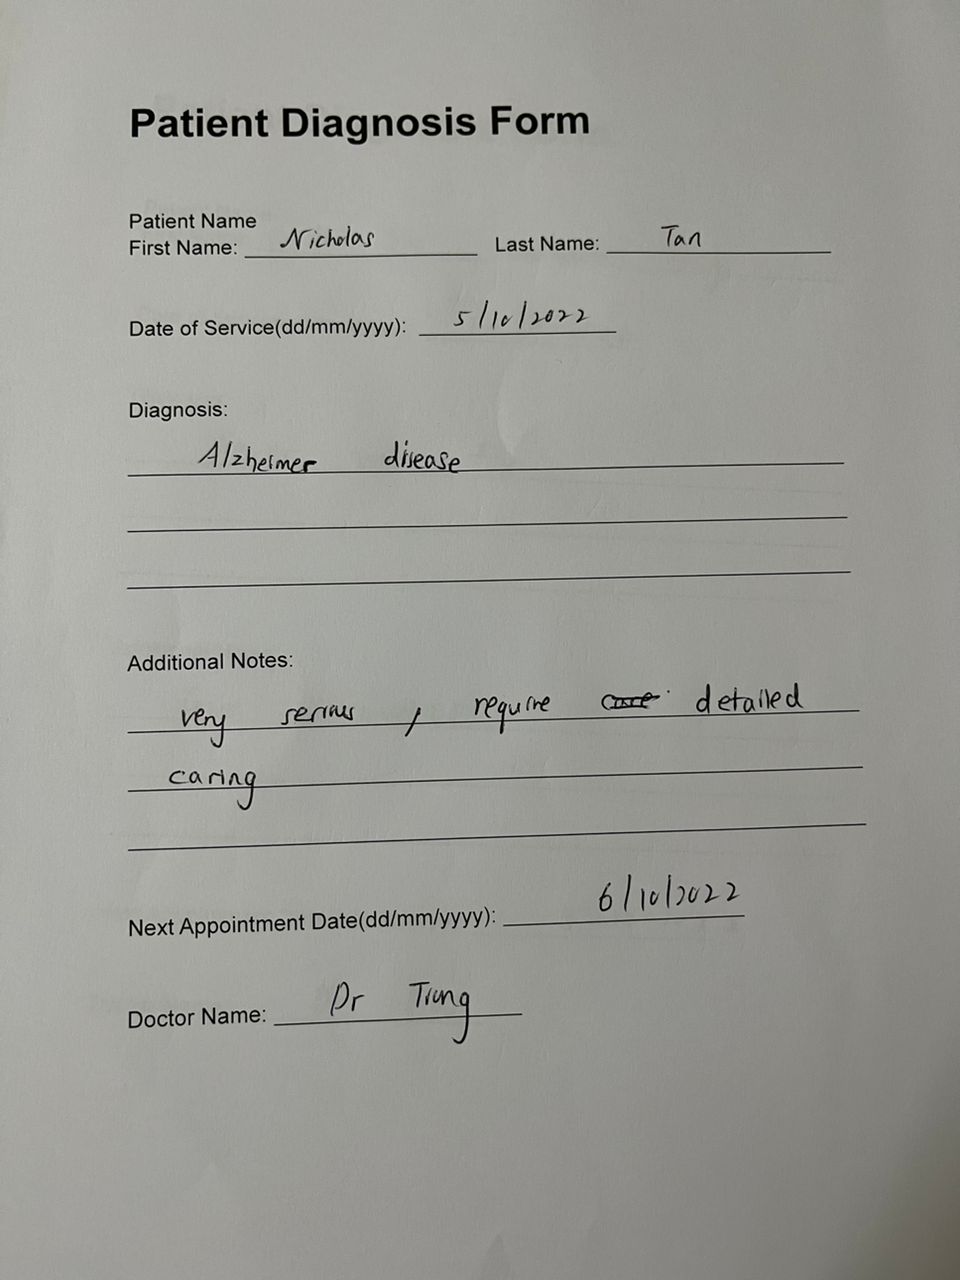 Patient Diagnosis Form
Patient Name
First Name: Nicholas Last Name: Tan
Date of Service(dd/mm/yyyy): 5/10/2022
Diagnosis:
Alzheimer disease
Additional Notes:
very serious, require detailed
caring
Next Appointment Date(dd/mm/yyyy): 6/10/2022
Doctor Name: Dr